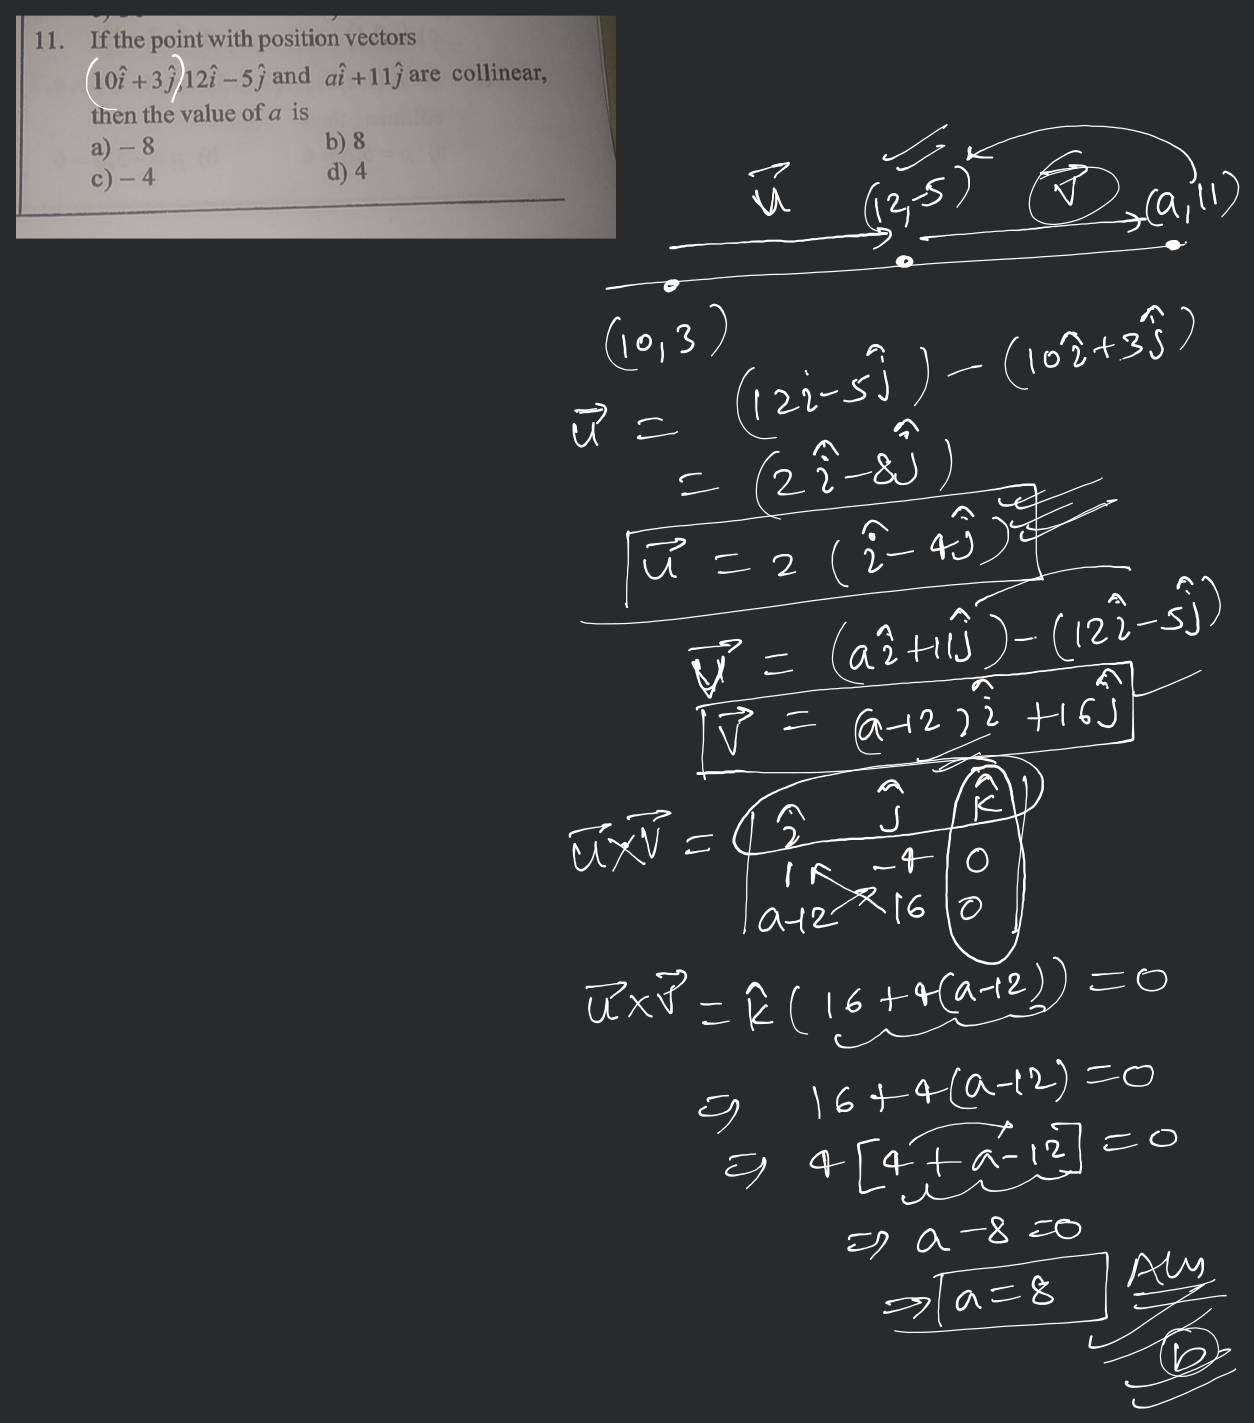 11. If the point with position vectors
10î + 3ĵ, 12î – 5ĵ and aî + 11ĵ are collinear,
then the value of a is
a) – 8 b) 8
c) – 4 d) 4
u⃗ (12,-5) v⃗ (a,11)
(10,3)
u⃗ = (12i-5ĵ) - (10î+3ĵ)
= (2î-8ĵ)
u⃗ = 2(î-4ĵ)
v⃗ = (aî+11ĵ)-(12î-5ĵ)
v⃗ = (a-12)î +16ĵ
î ĵ k̂
u⃗×v⃗ = 1 -4 0
a-12 16 0
u⃗×v⃗ = k̂(16+4(a-12))=0
⇒ 16+4(a-12)=0
⇒ 4[4+a-12]=0
⇒ a-8=0
⇒ a=8 Ans
b